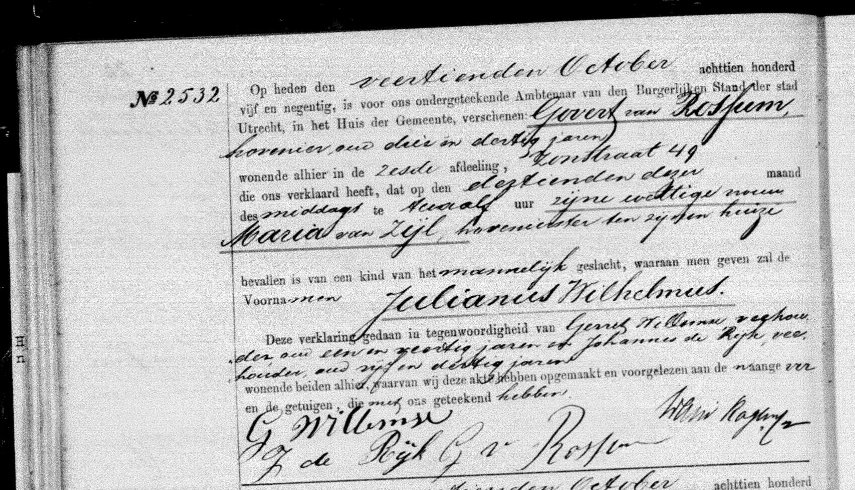 № 2532
Op heden den veertienden October achttien honderd
vijf en negentig, is voor ons ondergeteekende Ambtenaar van den Burgerlijken Stand der stad
Utrecht, in het Huis der Gemeente, verschenen: Govert van Rossum,
hovenier, oud drie en dertig jaren
wonende alhier in de zesde afdeeling, Zonstraat 49
die ons verklaard heeft, dat op den dertienden dezer maand
des middags te twaalf uur zijne wettige vrouw
Maria van Zijl, hovenierster ten zijnen huize
bevallen is van een kind van het mannelijk geslacht, waaraan men geven zal de
Voornamen Julianus Wilhelmus.
Deze verklaring gedaan in tegenwoordigheid van Gerret Willemse veehou
der oud een en veertig jaren en Johannes de Rijk, vee
houder, oud vijf en dertig jaren
wonende beiden alhier, waarvan wij deze akte hebben opgemaakt en voorgelezen aan de aangever
en de getuigen, die met ons geteekend hebben.
G Willemse
J de Rijk G v Rossum
October achttien honderd